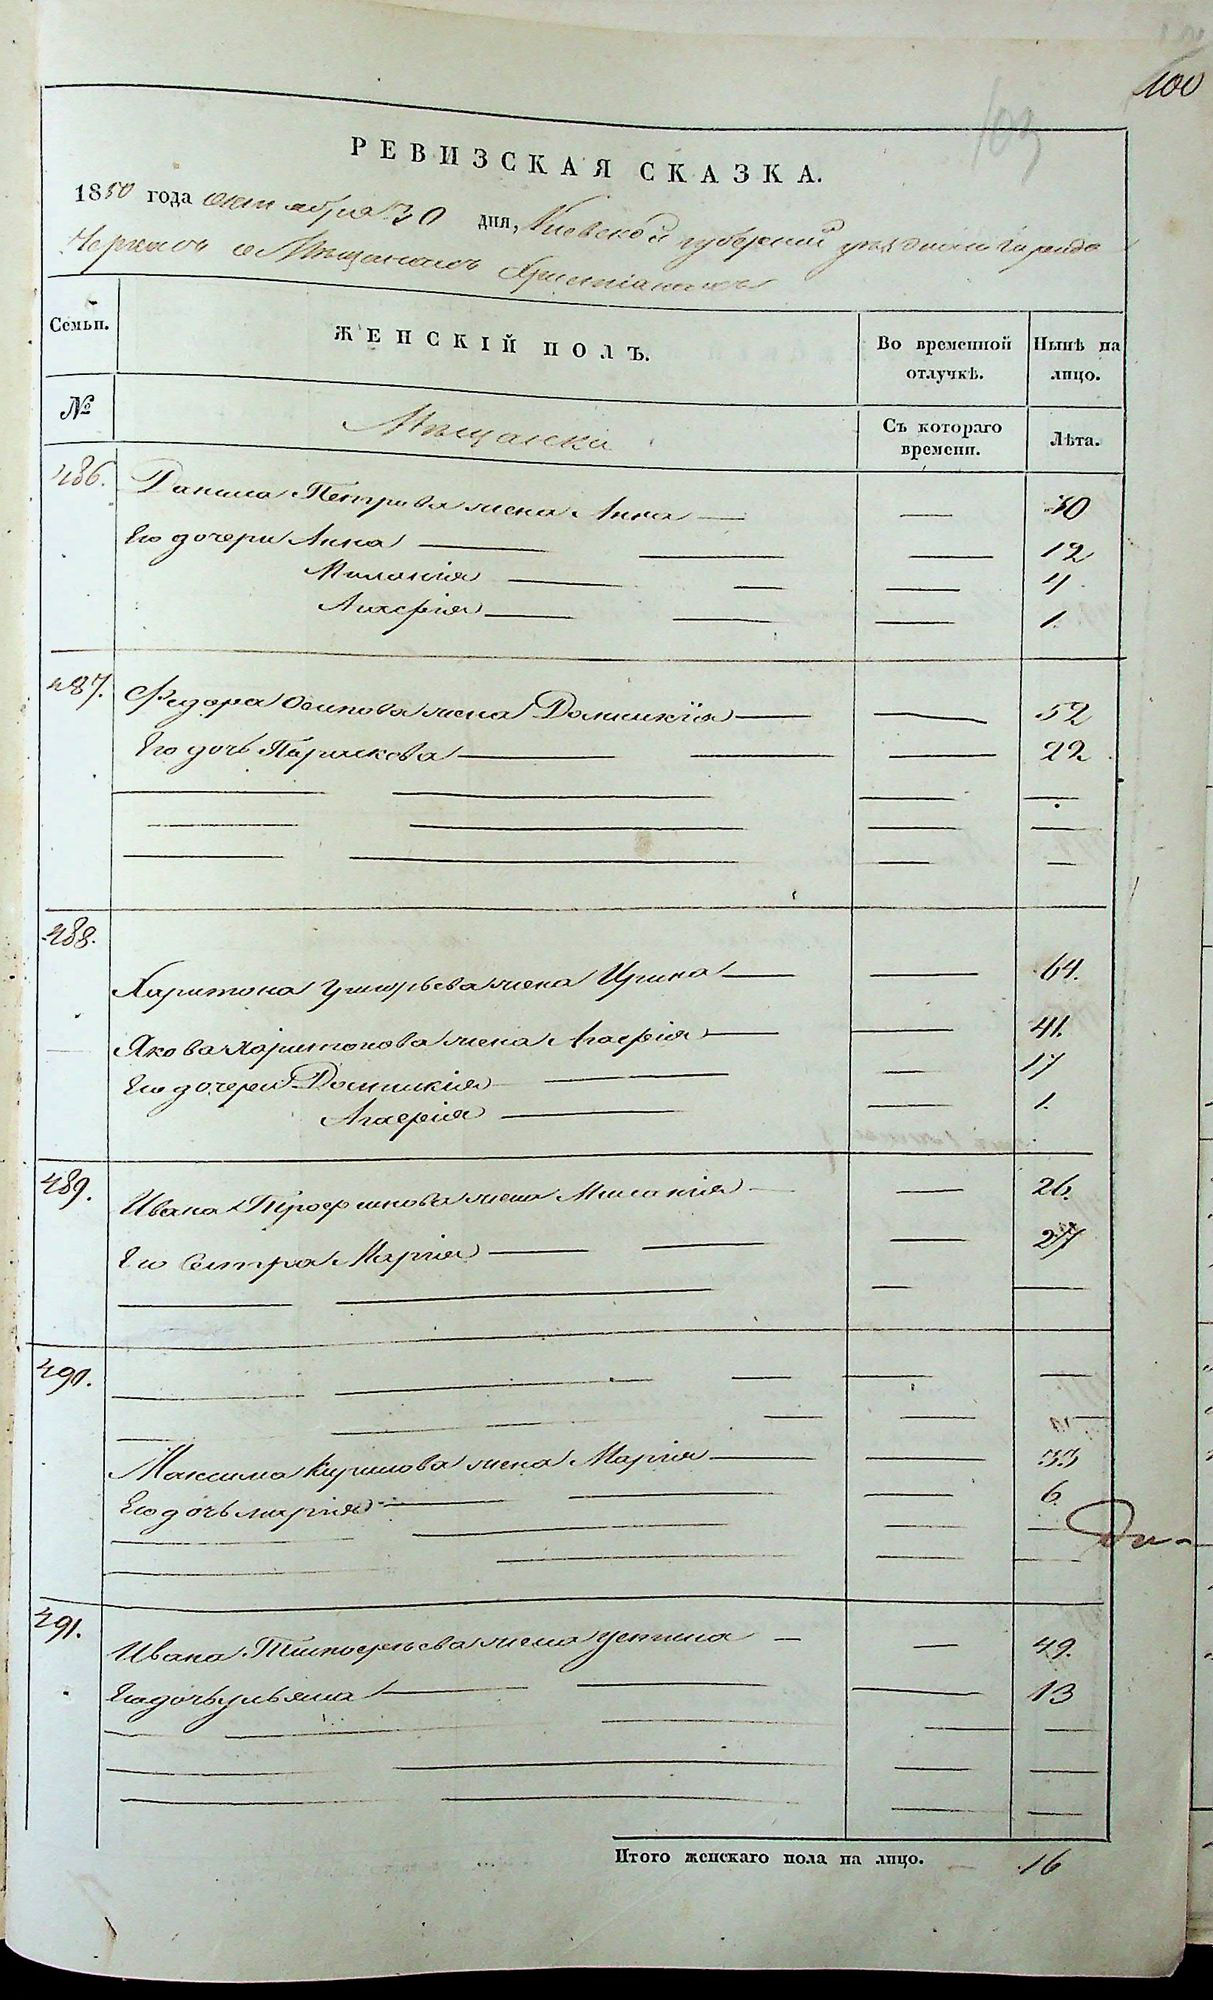 100
103
РЕВИЗСКАЯ СКАЗКА.
1850 года октября 30 дня, Киевской губернии уезднаго города
Черкасъ о Мѣщанахъ Христіанахъ
Семьи. ЖЕНСКІЙ ПОЛЪ. Во временной отлучкѣ. Нынѣ на лицо.
№ Мѣщанска Съ котораго времени. Лѣта.
486. Данила Петрова жена Анна — — 30
Его дочери Анна — — — 12
Миланія — — — 4
Агафія — — — 1.
487. Федора Осипова жена Домникія — — 52
Его дочь Параскова — — — 22
488.
Харитона Григорьева жена Ирина — — 64.
Якова Харитонова жена Агафія — — 41.
Его дочери Домникія — — 17
Агафія — — 1.
489. Ивана Трофимова жена Миланія — — 26.
Его Сестра Марія — — — 27
490.
Максима Кирилова жена Марія — — 33
Его дочь марія — — — 6.
491.
Ивана Тимофеева жена устина — — 49.
Его дочь ульяна — — — 13
Итого женскаго пола на лицо. — 16